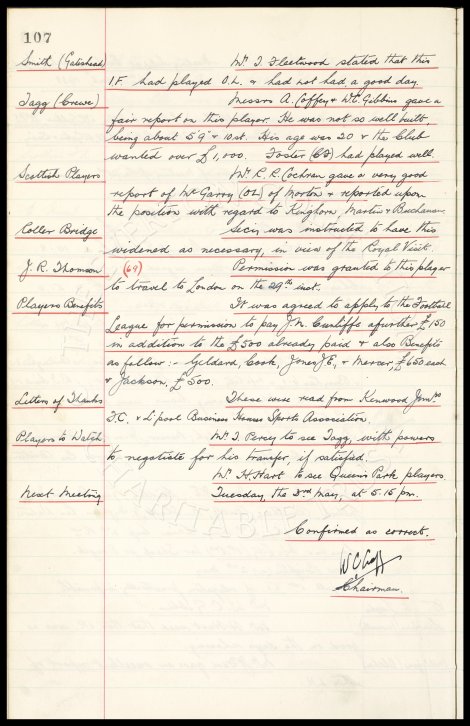 107
Smith (Gateshead) Mr. T. Fleetwood stated that this
I.F. had played O.L. & had not had a good day.
Tagg (Crewe) Messrs A. Coffey & W.C. Gibbins gave a
fair report on this player. He was not so well built,
being about 5'9" & 10st. His age was 20 & the Club
wanted over £1,000. Foster had played well.
Scottish Players Mr. R.R. Cochran gave a very good
report of McGarry (OL) of Morton & reported upon
the position with regard to Kinghorn, Martin & Buchanan.
Coller Bridge Secy. was instructed to have this
widened as necessary, in view of the Royal Visit.
J.R. Thomson (69) Permission was granted to this player
to travel to London on the 29th inst.
Players Benefits It was agreed to apply to the Football
League for permission to pay J.N. Cunliffe a further £150
in addition to the £500 already paid & also Benefits
as follow :- Geldard, Cook, Jones J.E., & Mercer, £650 each
& Jackson, £500.
Letters of Thanks These were read from Kenwood Jnrs
F.C. & L'pool Business Houses Sports Association.
Players to Watch Mr. T. Percy to see Tagg, with powers
to negotiate for his transfer, if satisfied.
Mr. H. Hart to see Queen's Park players.
Next Meeting Tuesday, the 3rd May, at 5.15 pm.
Confirmed as correct.
W C Cuff
Chairman.